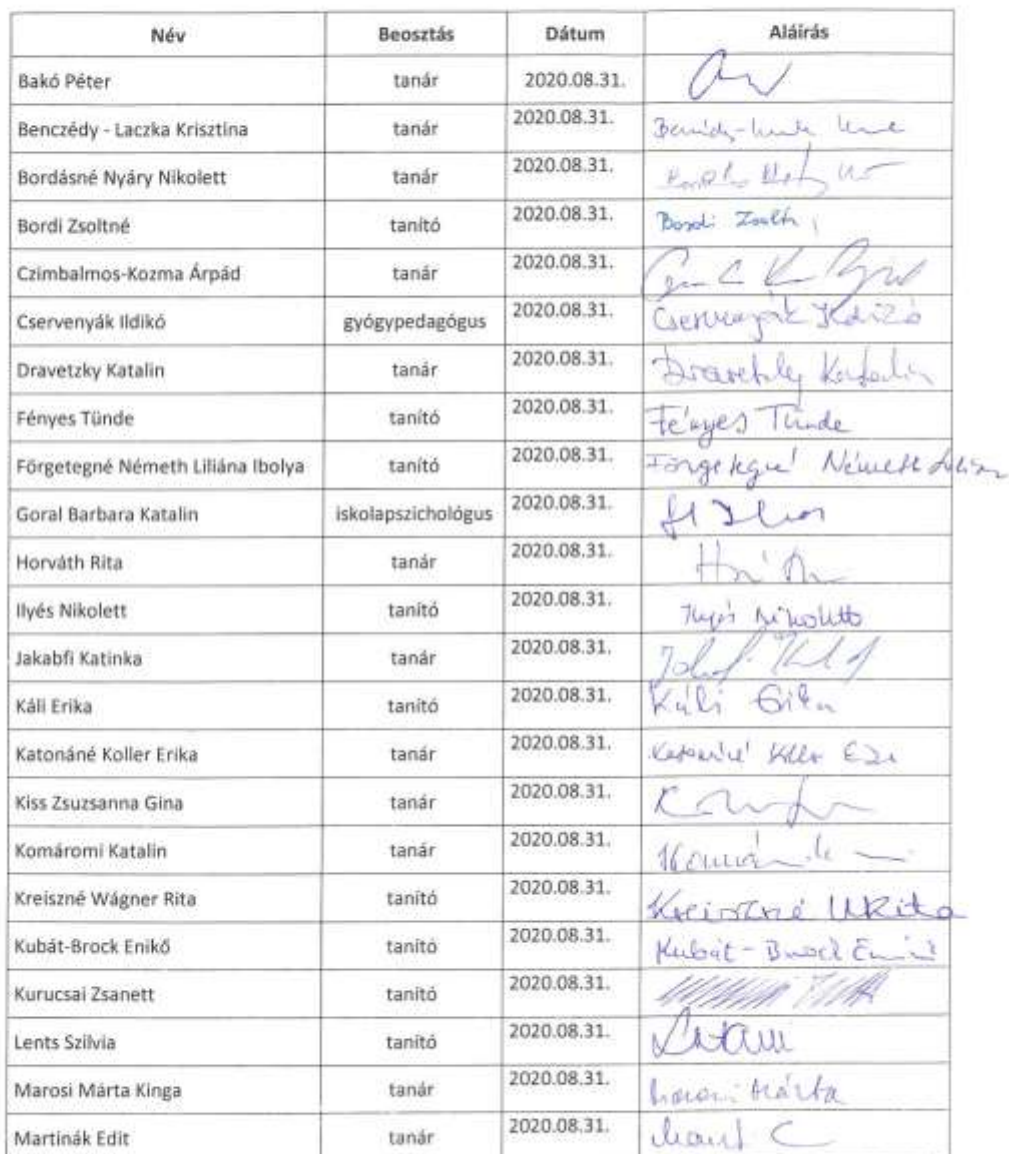 Név Beosztás Dátum Aláírás
Bakó Péter tanár 2020.08.31.
Benczédy - Laczka Krisztina tanár 2020.08.31.
Bordásné Nyáry Nikolett tanár 2020.08.31.
Bordi Zsoltné tanító 2020.08.31. Bordi Zsoltn
Czimbalmos-Kozma Árpád tanár 2020.08.31.
Cservenyák Ildikó gyógypedagógus 2020.08.31. Cservenyák Ildikó
Dravetzky Katalin tanár 2020.08.31. Dravetzky Katalin
Fényes Tünde tanító 2020.08.31. Fényes Tünde
Förgetegné Németh Liliána Ibolya tanító 2020.08.31. Förgetegné Németh Lilián
Goral Barbara Katalin iskolapszichológus 2020.08.31.
Horváth Rita tanár 2020.08.31.
Ilyés Nikolett tanító 2020.08.31. Ilyés Nikolett
Jakabfi Katinka tanár 2020.08.31.
Káli Erika tanító 2020.08.31. Káli Erika
Katonáné Koller Erika tanár 2020.08.31. Katonáné
Kiss Zsuzsanna Gina tanár 2020.08.31.
Komáromi Katalin tanár 2020.08.31.
Kreiszné Wágner Rita tanító 2020.08.31. Kreiszné W Rita
Kubát-Brock Enikő tanító 2020.08.31. Kubát - Brock Enikő
Kurucsai Zsanett tanító 2020.08.31.
Lents Szilvia tanító 2020.08.31.
Marosi Márta Kinga tanár 2020.08.31. Marosi Márta
Martinák Edit tanár 2020.08.31.